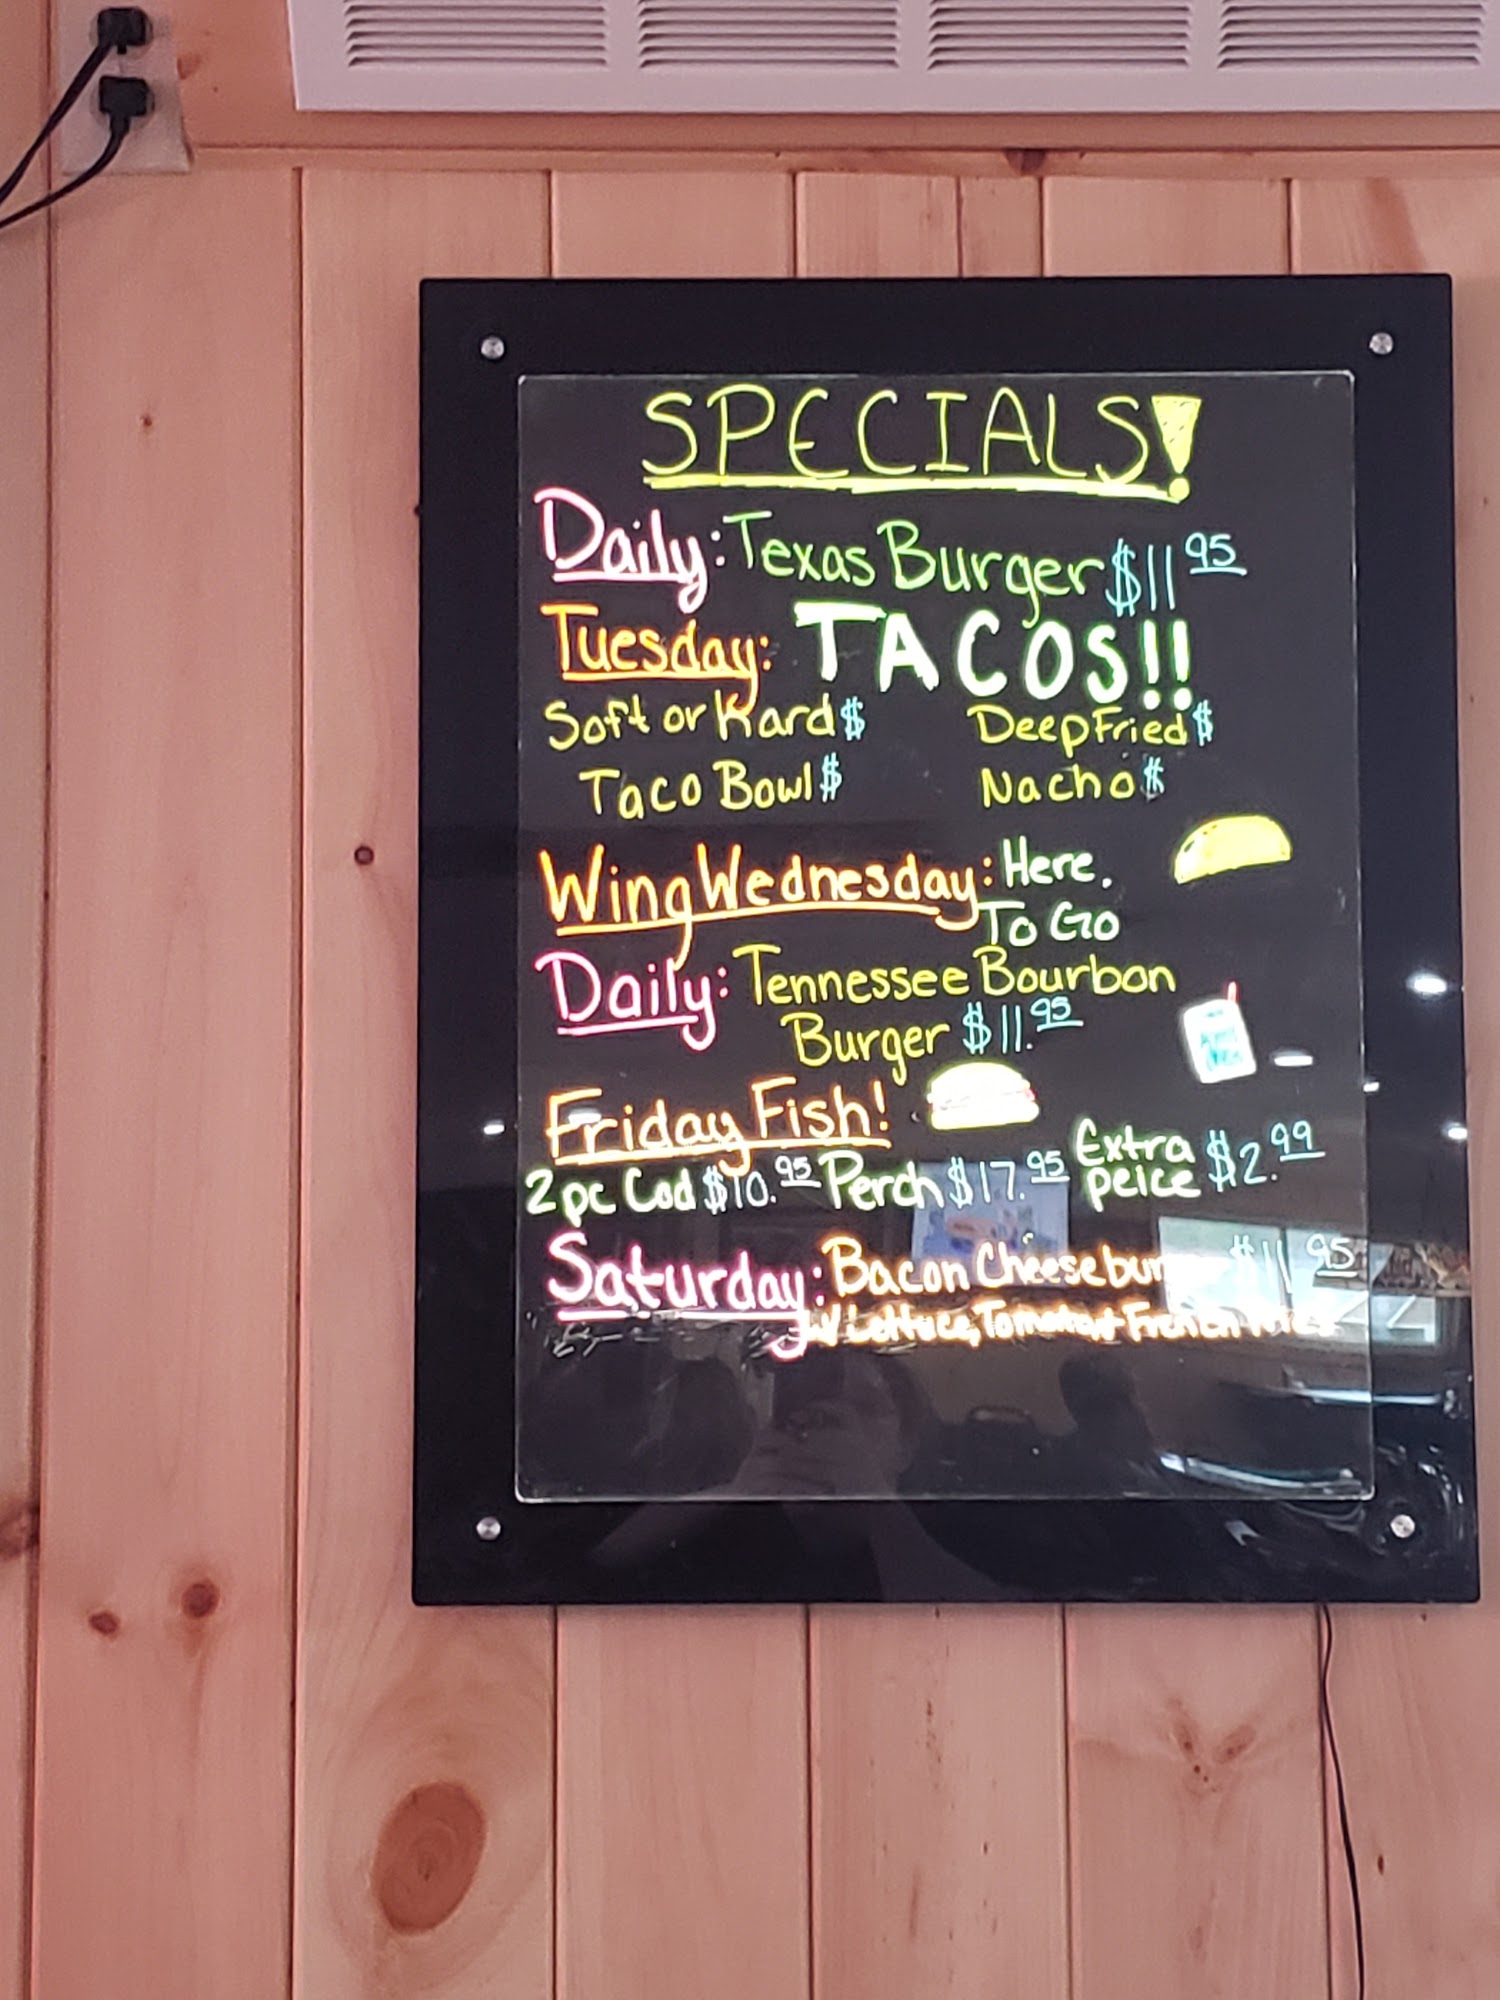 SPECIALS!
Daily: Texas Burger $11 95
Tuesday: TACOS!!
Soft or Hard $ Deep Fried $
Taco Bowl $ Nacho $
Wing Wednesday: Here.
To Go
Daily: Tennessee Bourbon
Burger $11.95
Friday Fish!
2pc Cod $10.95 Perch $17.95 Extra peice $2.99
Saturday: Bacon Cheesebur $11 95
w/ Lettuce, Tomato + French Fries